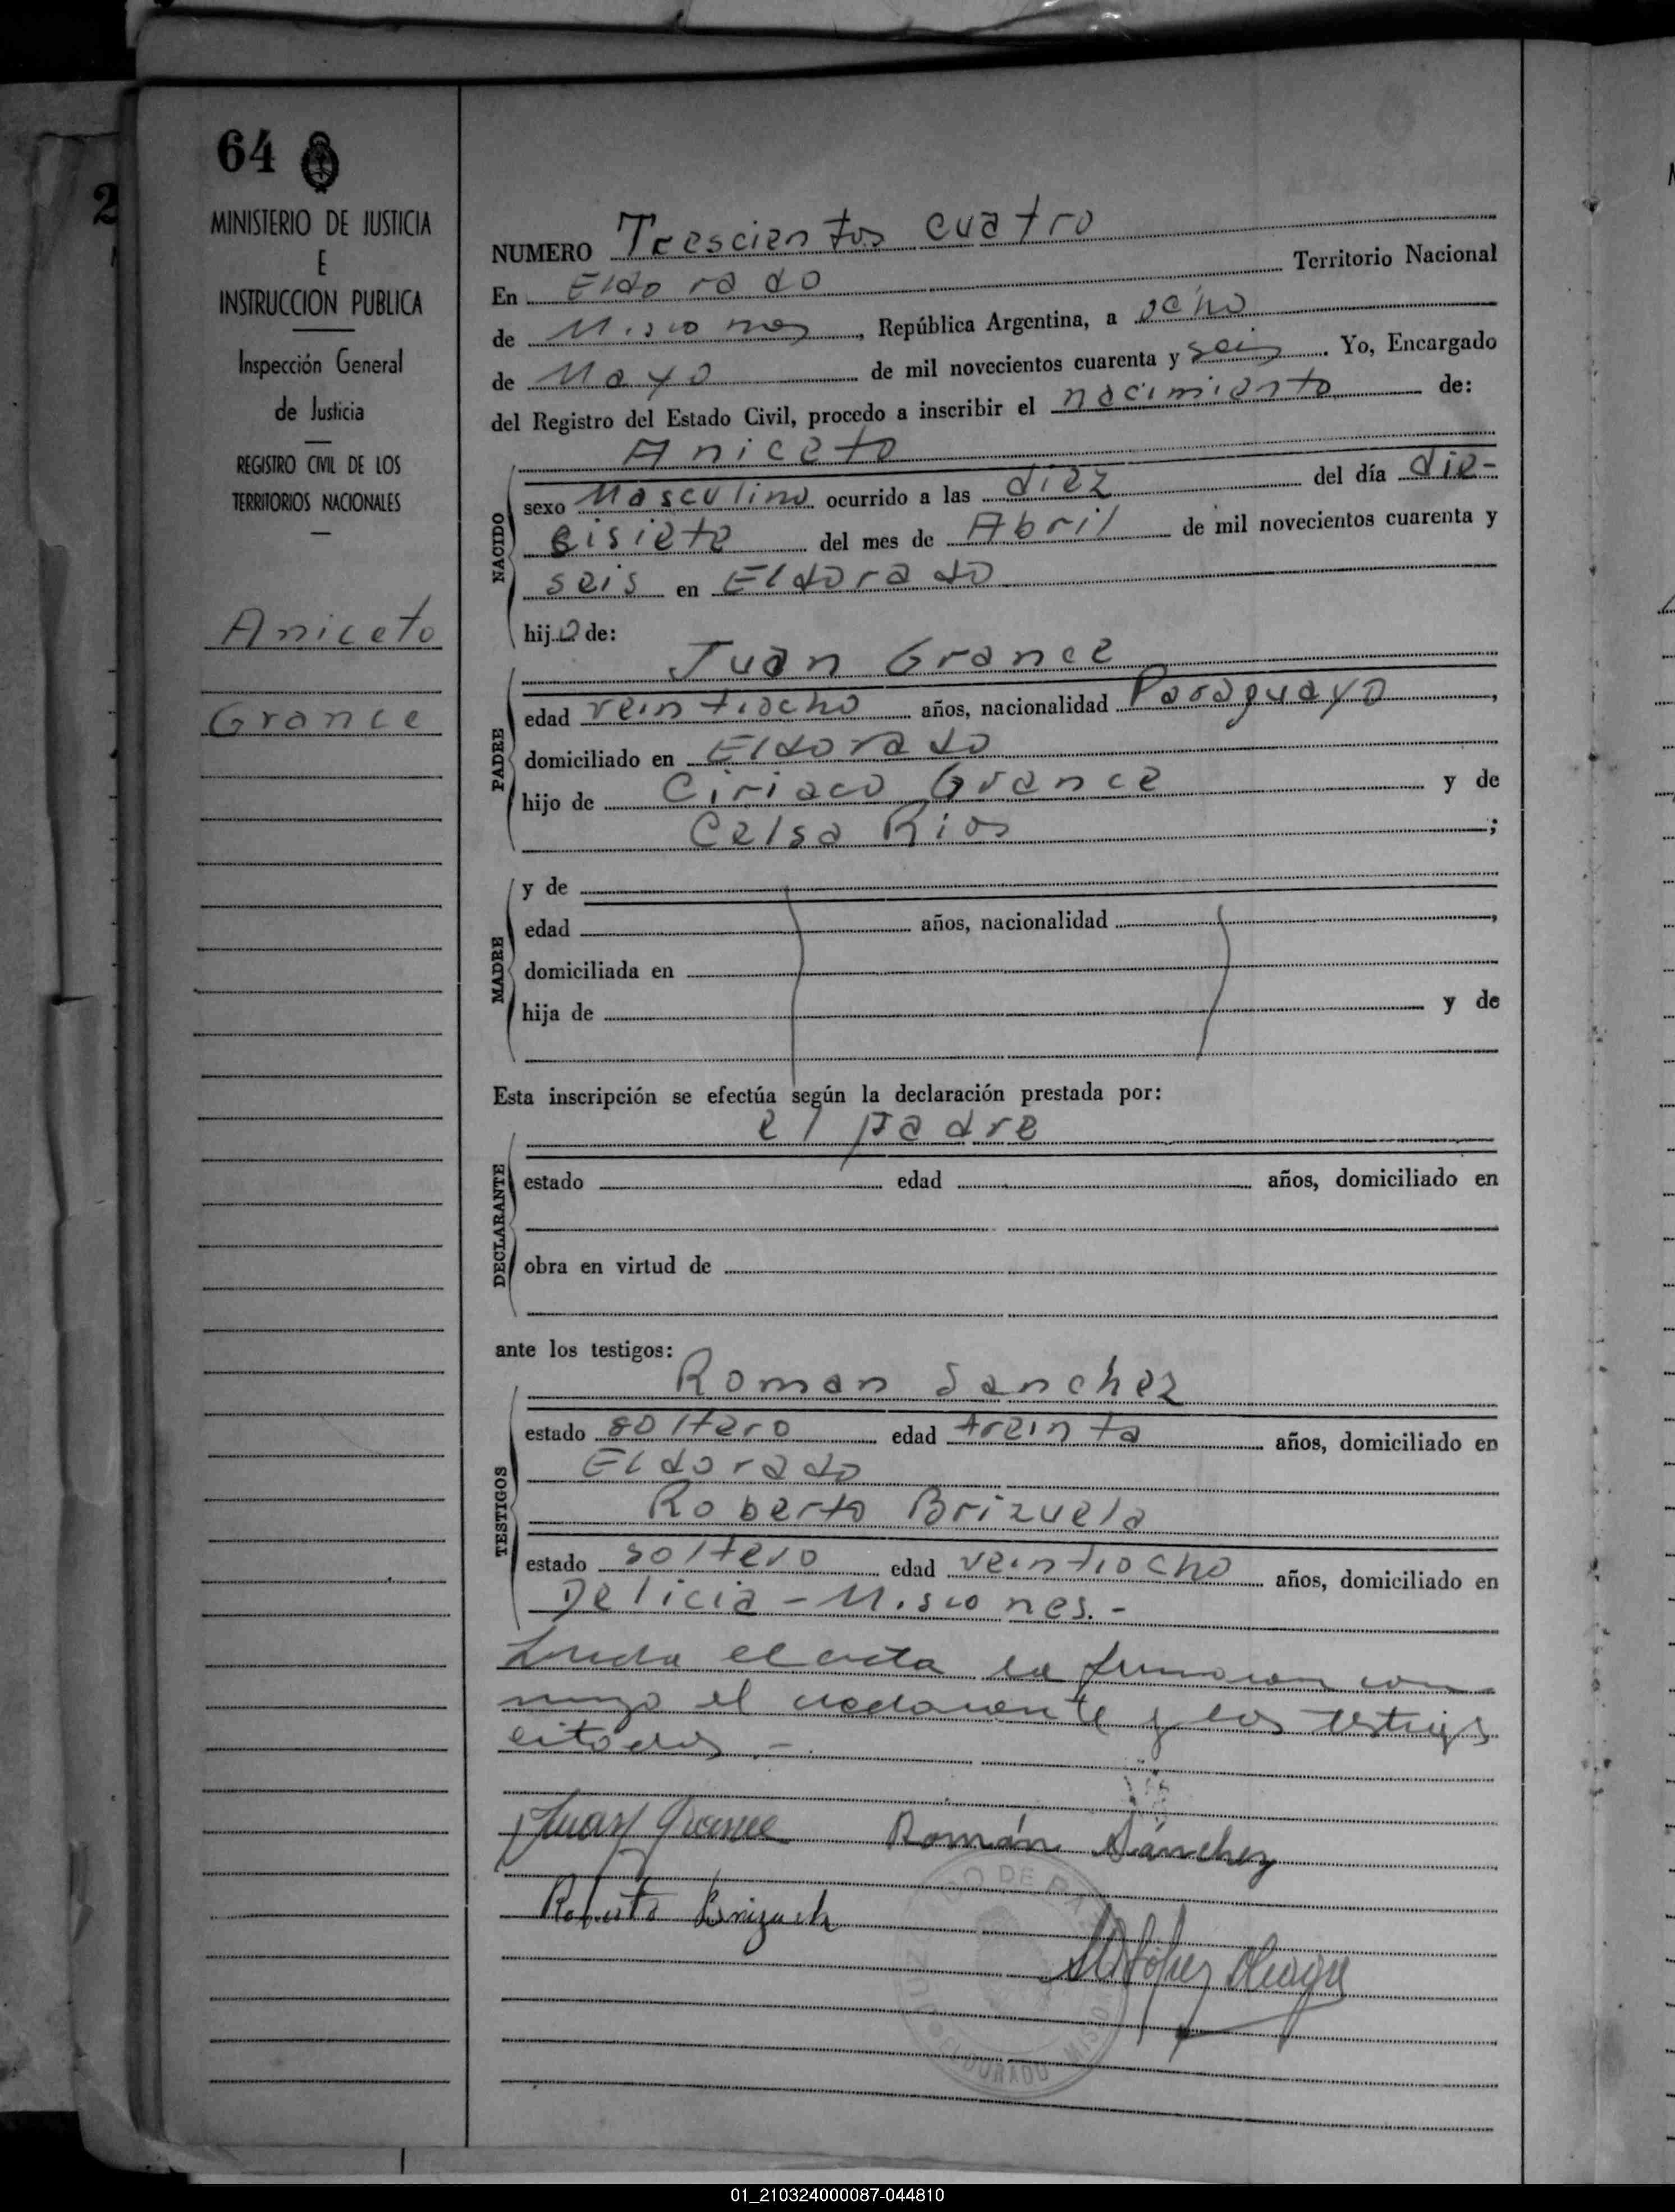 64
MINISTERIO DE JUSTICIA
E
INSTRUCCION PUBLICA
Inspección General
de Justicia
REGISTRO CIVIL DE LOS
TERRITORIOS NACIONALES
Aniceto
Grance
NUMERO Trescientos cuatro
En Eldorado Territorio Nacional
de Misiones, República Argentina, a ocho
de Mayo de mil novecientos cuarenta y seis. Yo, Encargado
del Registro del Estado Civil, procedo a inscribir el nacimiento de:
Aniceto
NACIDO
sexo Masculino ocurrido a las diez del día die-
cisiete del mes de Abril de mil novecientos cuarenta y
seis en Eldorado
hijo de:
Juan Grance
PADRE
edad veintiocho años, nacionalidad Paraguayo,
domiciliado en Eldorado
hijo de Ciriaco Grance y de
Celsa Rios;
MADRE
y de
edad años, nacionalidad,
domiciliada en
hija de y de
Esta inscripción se efectúa según la declaración prestada por:
el padre
DECLARANTE
estado edad años, domiciliado en
obra en virtud de
ante los testigos:
Roman Sanchez
TESTIGOS
estado soltero edad treinta años, domiciliado en
Eldorado
Roberto Brizuela
estado soltero edad veintiocho años, domiciliado en
Delicia - Misiones.-
Leida el acta la firmaron con
migo el declarante y los testigos
citados.-
Juan Grance Román Sánchez
Roberto Brizuela
López
01_210324000087-044810